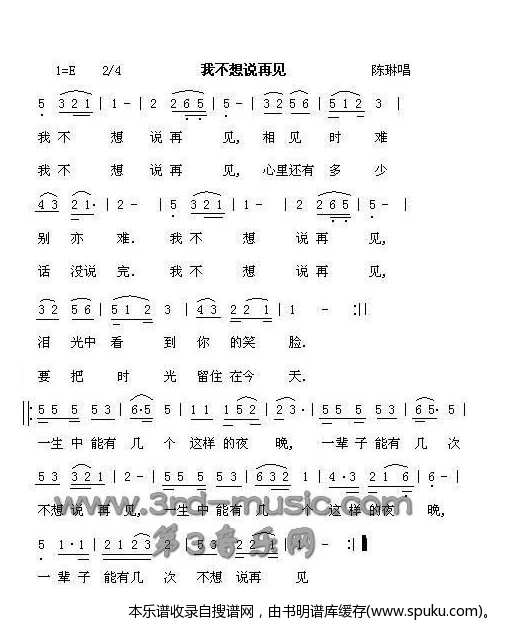 1=E 2/4 我不想说再见 陈琳唱
5 3 2 1 | 1 - | 2 2 6 5 | 5 - | 3 2 5 6 | 5 1 2 3 |
我 不 想 说 再 见, 相 见 时 难
我 不 想 说 再 见, 心里还有 多 少
4 3 2 1· | 2 - | 5 3 2 1 | 1 - | 2 2 6 5 | 5 - |
别 亦 难. 我 不 想 说 再 见,
话 没说 完. 我 不 想 说 再 见,
3 2 5 6 | 5 1 2 | 3 | 6 1 4 3 | 2 2 1 | 1 - :||
泪 光中 看 到 你 的笑 脸.
要 把 时 光 留住 在今 天.
||: 5 5 5 5 5 3 | 6·5 5 | 1 1 1 5 2 | 2 3· | 5 5 5 5 3 | 6 5· 5 |
一生 中 能有 几 个 这样 的夜 晚, 一辈子 能有 几 次
5 3 3 2 2 | 1 - | 5 5 5 5 5 3 | 6 3 2 1 | 4·3 2 1 6 | 6 - |
不想 说 再 见, 一生 中 能有 几 个 这 样 的夜 晚,
5 1·1 | 2 1 2 3 | 5 3 2 2 | 1 - :||
一 辈子 能有 几 次 不想 说再 见
www.3rd-music.com
第3音乐网
本乐谱收录自搜谱网，由书明谱库缓存(www.spuku.com)。